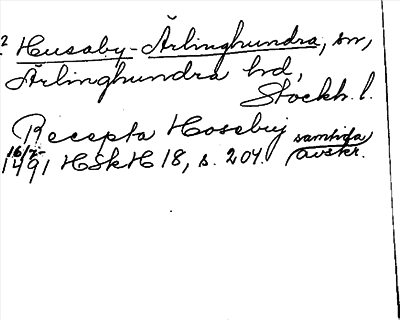 2 Husaby-Ärlinghundra, sn,
Ärlinghundra hd,
Stockh. l.
Recepta Hosaby samtida
16/7 1491 HSkH 18, s. 204. avskr.